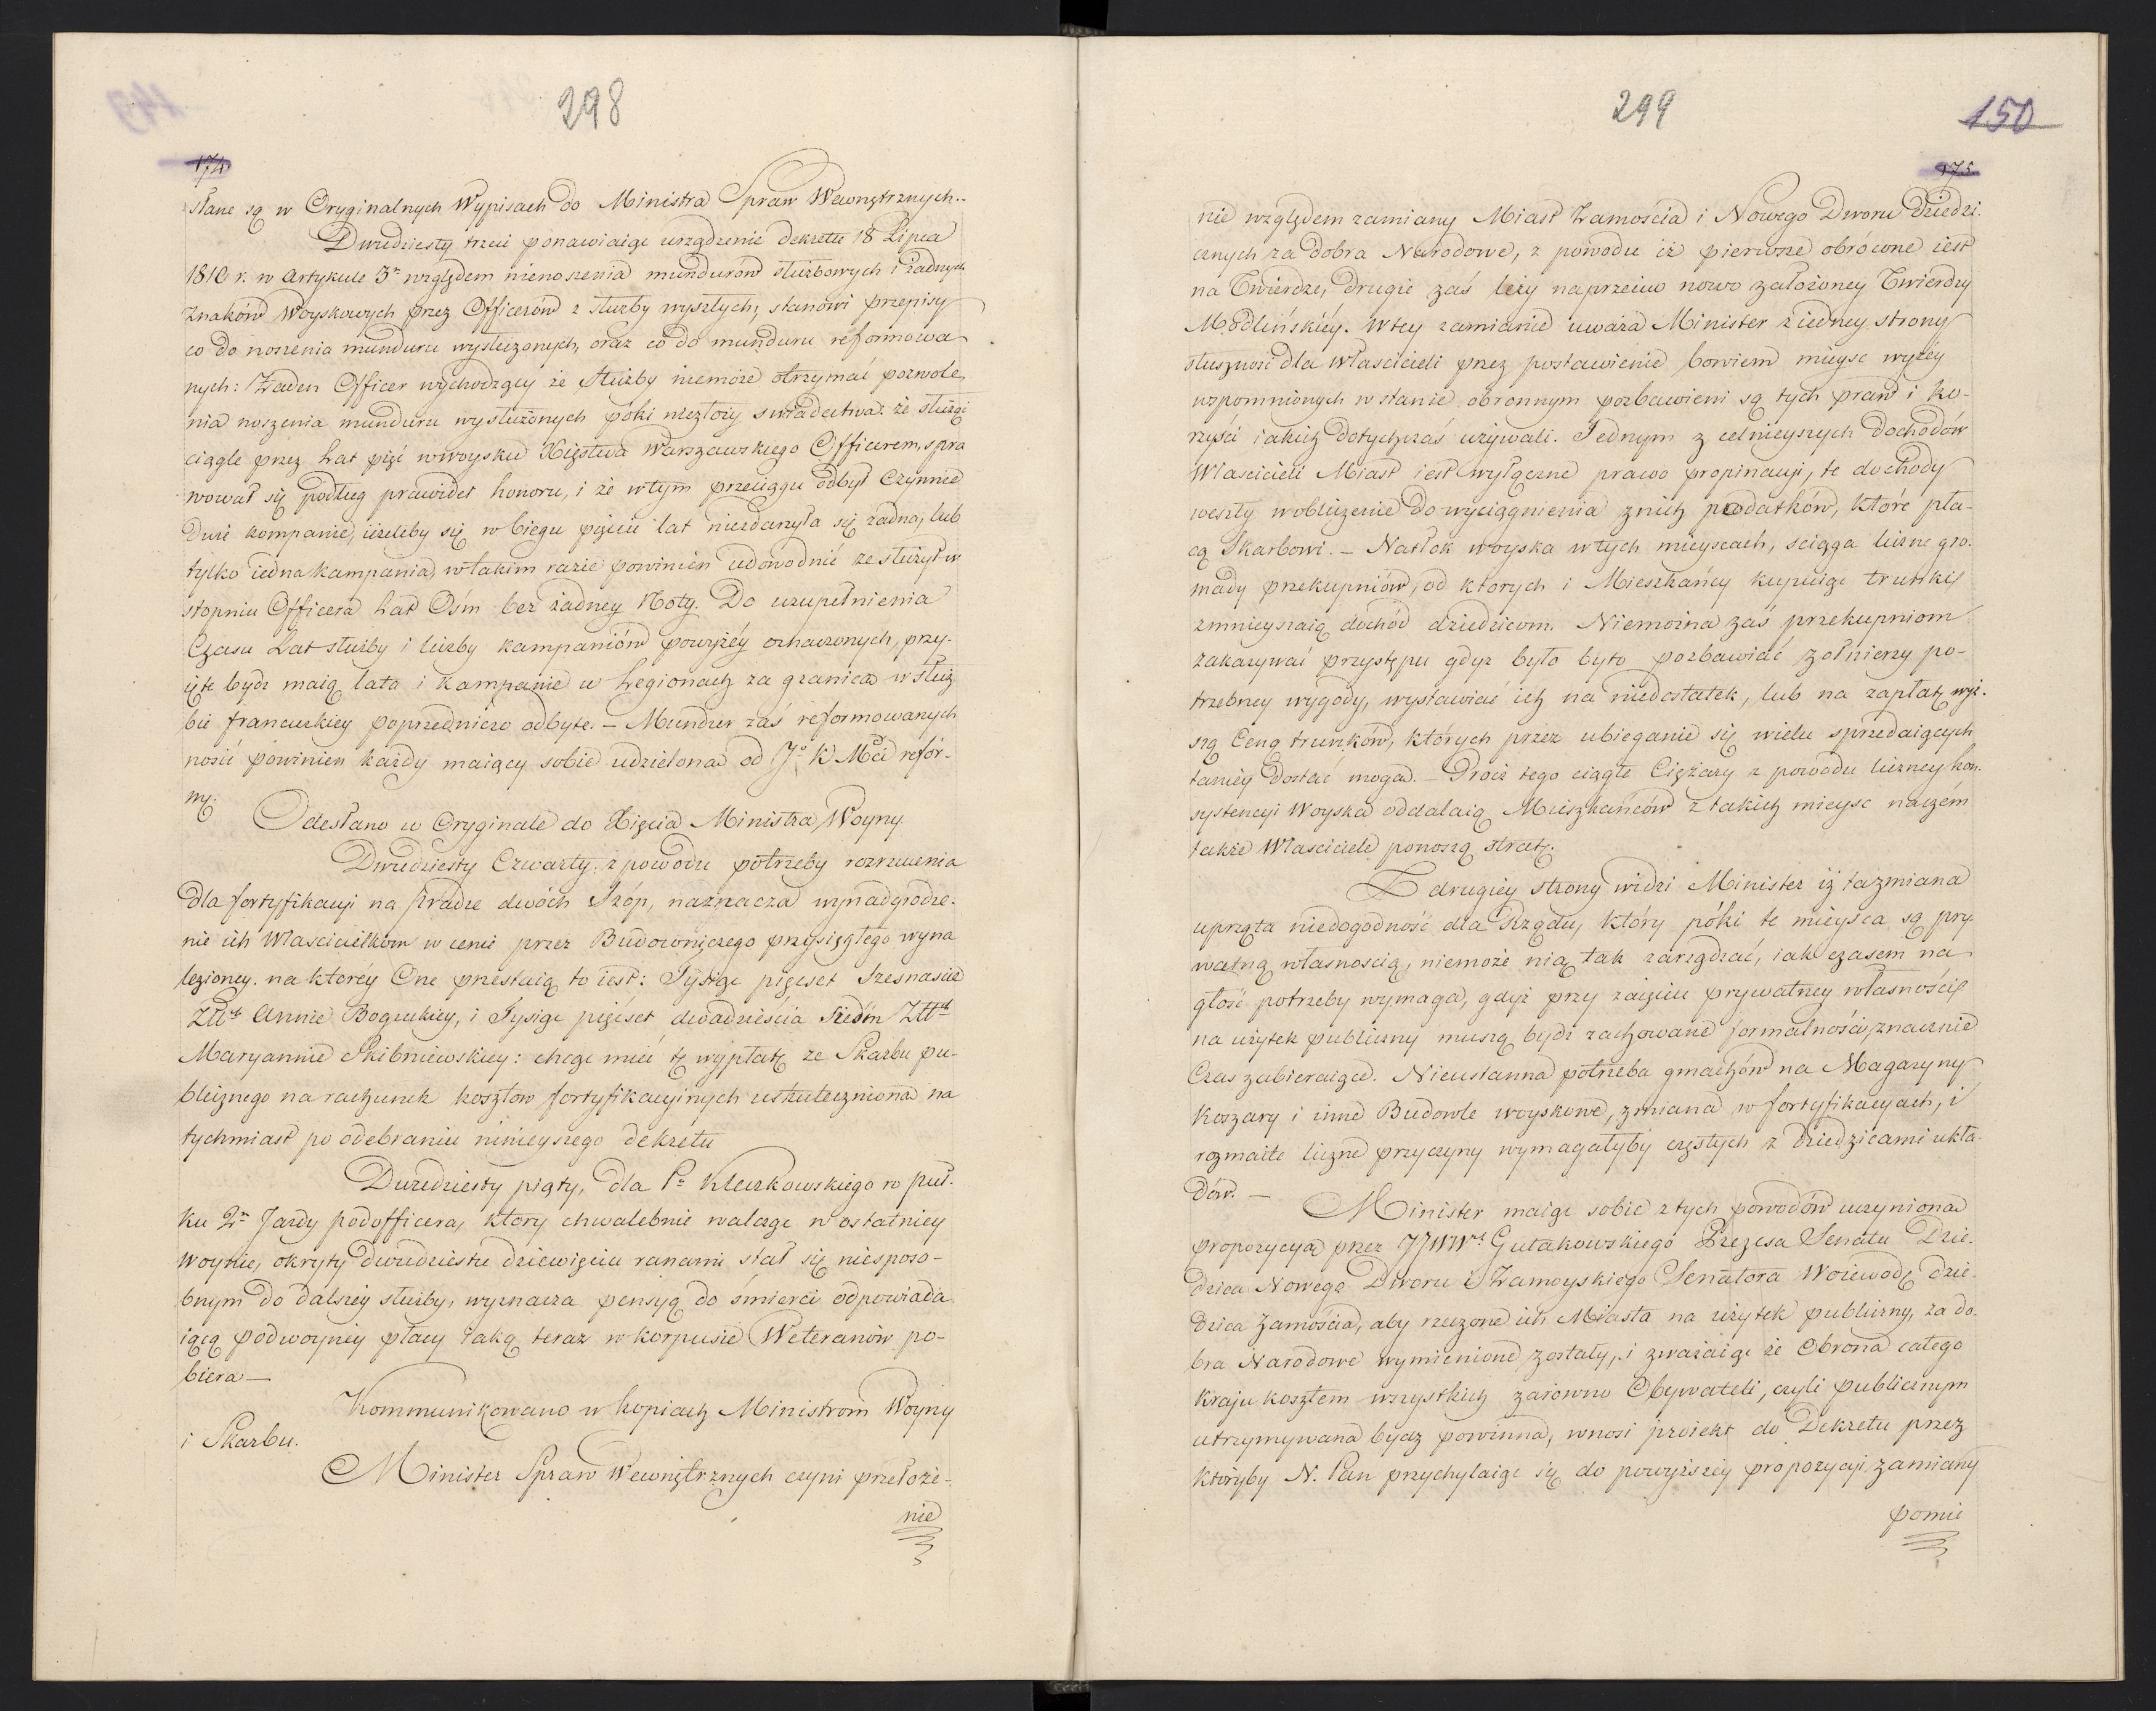 298
174
słane są w Oryginalnych Wypisach do Ministra Spraw Wewnętrznych..
Dwudziesty trzeci ponawiaiąc urządzenie dekretu 18 Lipca
1810 r. w Artykule 3m względem nienoszenia mundurów służbowych i żadnych
Znaków Woyskowych przez Officerów z służby wyszłych, stanowi przepisy
co do noszenia munduru wysłużonych, oraz co do munduru reformowa
nych: Żaden Officer wychodzący ze służby niemoże otrzymać pozwole
nia noszenia munduru wysłużonych póki niezłoży swiadectwa: że służąc
ciągle przez Lat pięć w woysku Xięstwa Warszawskiego Officerem, spra
wował się podług prawideł honoru, i że w tym przeciągu odbył Czynnie
Dwie kompanie, ieżeliby się w biegu pięciu lat niezdarzyła się żadna, lub
tylko iedna Kampania, w takim razie powinien udowodnić że służył w
stopniu Officera Lat Ośm bez żadney Noty. Do uzupełnienia
Czasu Lat służby i liczby kampaniów powyżéy oznaczonych, przy-
ięte bydź maią lata i Kampanie w Legionach za granicą w służ
bie francuzkiey poprzedniczo odbyte. – Mundur zaś reformowanych
nosić powinien każdy maiący sobie udzieloną od Jo K Mci refor-
mę.
Odesłano w Oryginale do Xięcia Ministra Woyny
Dwudziesty Czwarty: z powodu potrzeby rozrzucenia
dla fortyfikacyi na Pradze dwóch Szóp, naznacza wynadgrodze-
nie ich Własciciełkom w cenie przez Budowniczego przysięgłego wyna
lezioney. na któréy One przestaią to iest: Tysiąc pięćset Szesnascie
Złt Annie Boguckiey, i Tysiąc pięćset dwadzieścia Siedm Złt
Maryannie Skibniewskiey: chcąc mieć tę wypłatę ze Skarbu pu-
blicznego na rachunek kosztow fortyfikacyinych uskutecznioną na
tychmiast po odebraniu ninieyszego dekretu
Dwudziesty piąty, dla P. Kleczkowskiego w puł-
ku 2m Jazdy podofficera, ktory chwalebnie walcząc w ostatniey
woynie, okryty dwudziestu dziewięciu ranami stał się niesposo-
bnym do dalszey służby, wyznacza pensyą do śmierci odpowiada
iącą podwoyney płacy iaką teraz w korpusie Weteranów po-
biera —
Kommunikowano w kopiach Ministrom Woyny
i Skarbu.
Minister Spraw Wewnętrznych czyni przełoże-
nie
299
150
175.
nie względem zamiany Miast Zamościa i Nowego Dworu dziedzi.
cznych za Dobra Narodowe, z powodu iż pierwsze obrócone iest
na Twierdzę, drugie zaś leży naprzeciw nowo założoney Twierdzy
Modlińskiéy. W tey zamianie uważa Minister z iedney strony
słusznosć dla własicieli przez postawienie bowiem mieysc wyżéy
wspomnionych w stanie obronnym pozbawieni są tych praw i ko-
rzyści iakich dotychczas używali. Jednym z celnieyszych dochodów
Własicieli Miast iest wyłączne prawo propinacyi, te dochody
weszły w obliczenie do wyciągnienia z nich podatków, które pła-
cą Skarbowi. – Natłok woyska w tych mieyscach, sciąga liczne gro-
mady przekupniów, od ktorych i Mieszkańcy kupuiąc trunki
zmnieyszaią dochód dziedzicom. Niemożna zaś przekupniom
zakazywać przystępu gdyż było byto pozbawiać żołnierzy po-
trzebney wygody, wystawiać ich na niedostatek, lub na zapłatę wyż-
szą Ceną trunków, których przez ubieganie się wielu sprzedaiących
taniéy dostać mogą. – Prócz tego ciągłe Ciężary z powodu liczney kon-
systencyi Woyska oddalaią Mieszkańców z takich mieysc naczém
także Własciciele ponoszą stratę.
Z drugiéy strony widzi Minister iż ta zmiana
uprząta niedogodność dla Rządu, który póki te mieysca są pry-
watną własnoscią, niemoże nią tak zarządzać, iak czasem na
głość potrzeby wymaga, gdyż przy zaięciu prywatney własności
na użytek publiczny muszą bydź zachowane formalności, znacznie
Czas zabieraiące. Nieustanna potrzeba gmachów na Magazyny
Koszary i inne Budowle woyskowe, zmiana w fortyfikacyach, i
rozmaite liczne przyczyny wymagałyby częstych z dziedzicami ukła-
dów. —
Minister maiąc sobie z tych powodów uczynioną
propozycyą przez JJWWch Gutakowskiego Prezesa Senatu Dzie-
dzica Nowego Dworu i Zamoyskiego Senatora Woiewodę dzie-
dzica Zamościa, aby rzeczone ich Miasta na użytek publiczny, za do-
bra Narodowe wymienione zostały, i zważaiąc że Obrona całego
Kraju kosztem wszystkich zarowno Obywateli, czyli publicznym
utrzymywana bydź powinna, wnosi proiekt do Dekretu przez
któryby N. Pan przychylaiąc się do powyższéy propozycyi zamiany
pomie